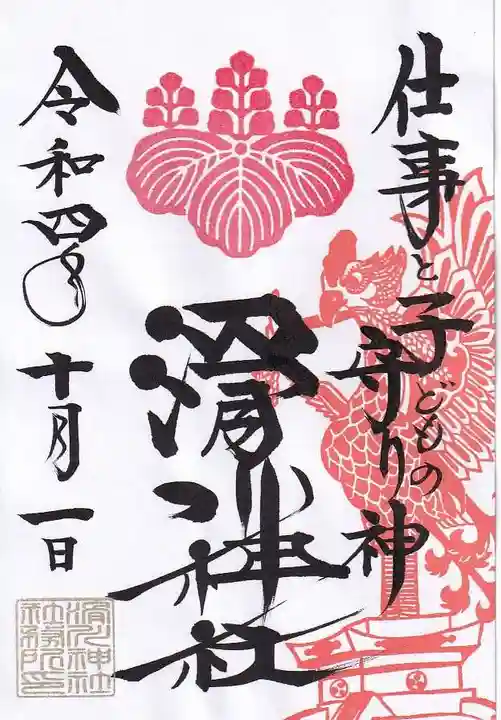 仕事と子どもの
守り神
滑川神社
令和四年 十月一日
滑川神社
社務所印